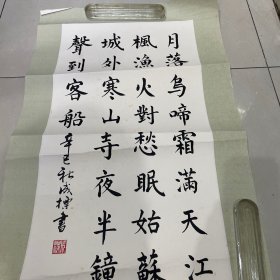 月落烏啼霜滿天江
楓漁火對愁眠姑蘇
城外寒山寺夜半鐘
聲到客船
辛巳秋成標書